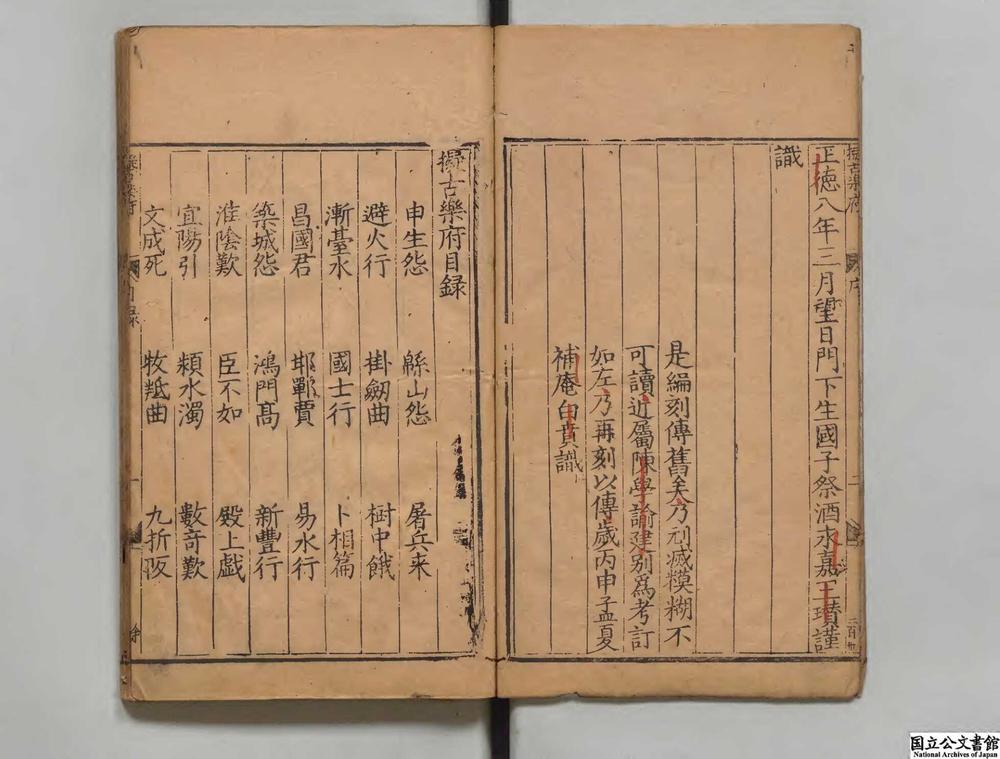 正徳八年三月望日門下生國子祭酒永嘉王瓚謹
識
是編刻傳舊矣乃刓滅糢糊不
可讀近屬陳學諭建别爲考訂
如左乃再刻以傳歲丙申孟夏
補庵白賁識
擬古樂府目録
申生怨 緜山怨 屠兵来
避火行 掛劒曲 樹中餓
漸臺水 國士行 卜相篇
昌國君 邯鄲賈 易水行
築城怨 鴻門高 新豐行
淮陰歎 臣不如 殿上戯
宜陽引 潁水濁 數奇歎
文成死 牧羝曲 九折阪
国立公文書館
National Archives of Japan